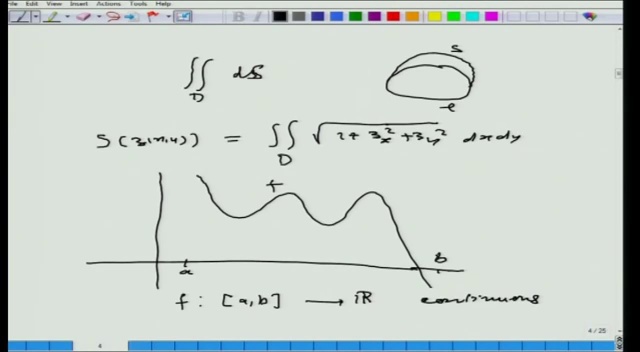 File View Insert Actions Tools Help
B I
∬ dS
D
S
S(z(x,y)) = ∬ √(1+z_x²+z_y²) dx dy
D
f
a
b
f : [a,b] ⟶ ℝ continuous
4 / 25
4